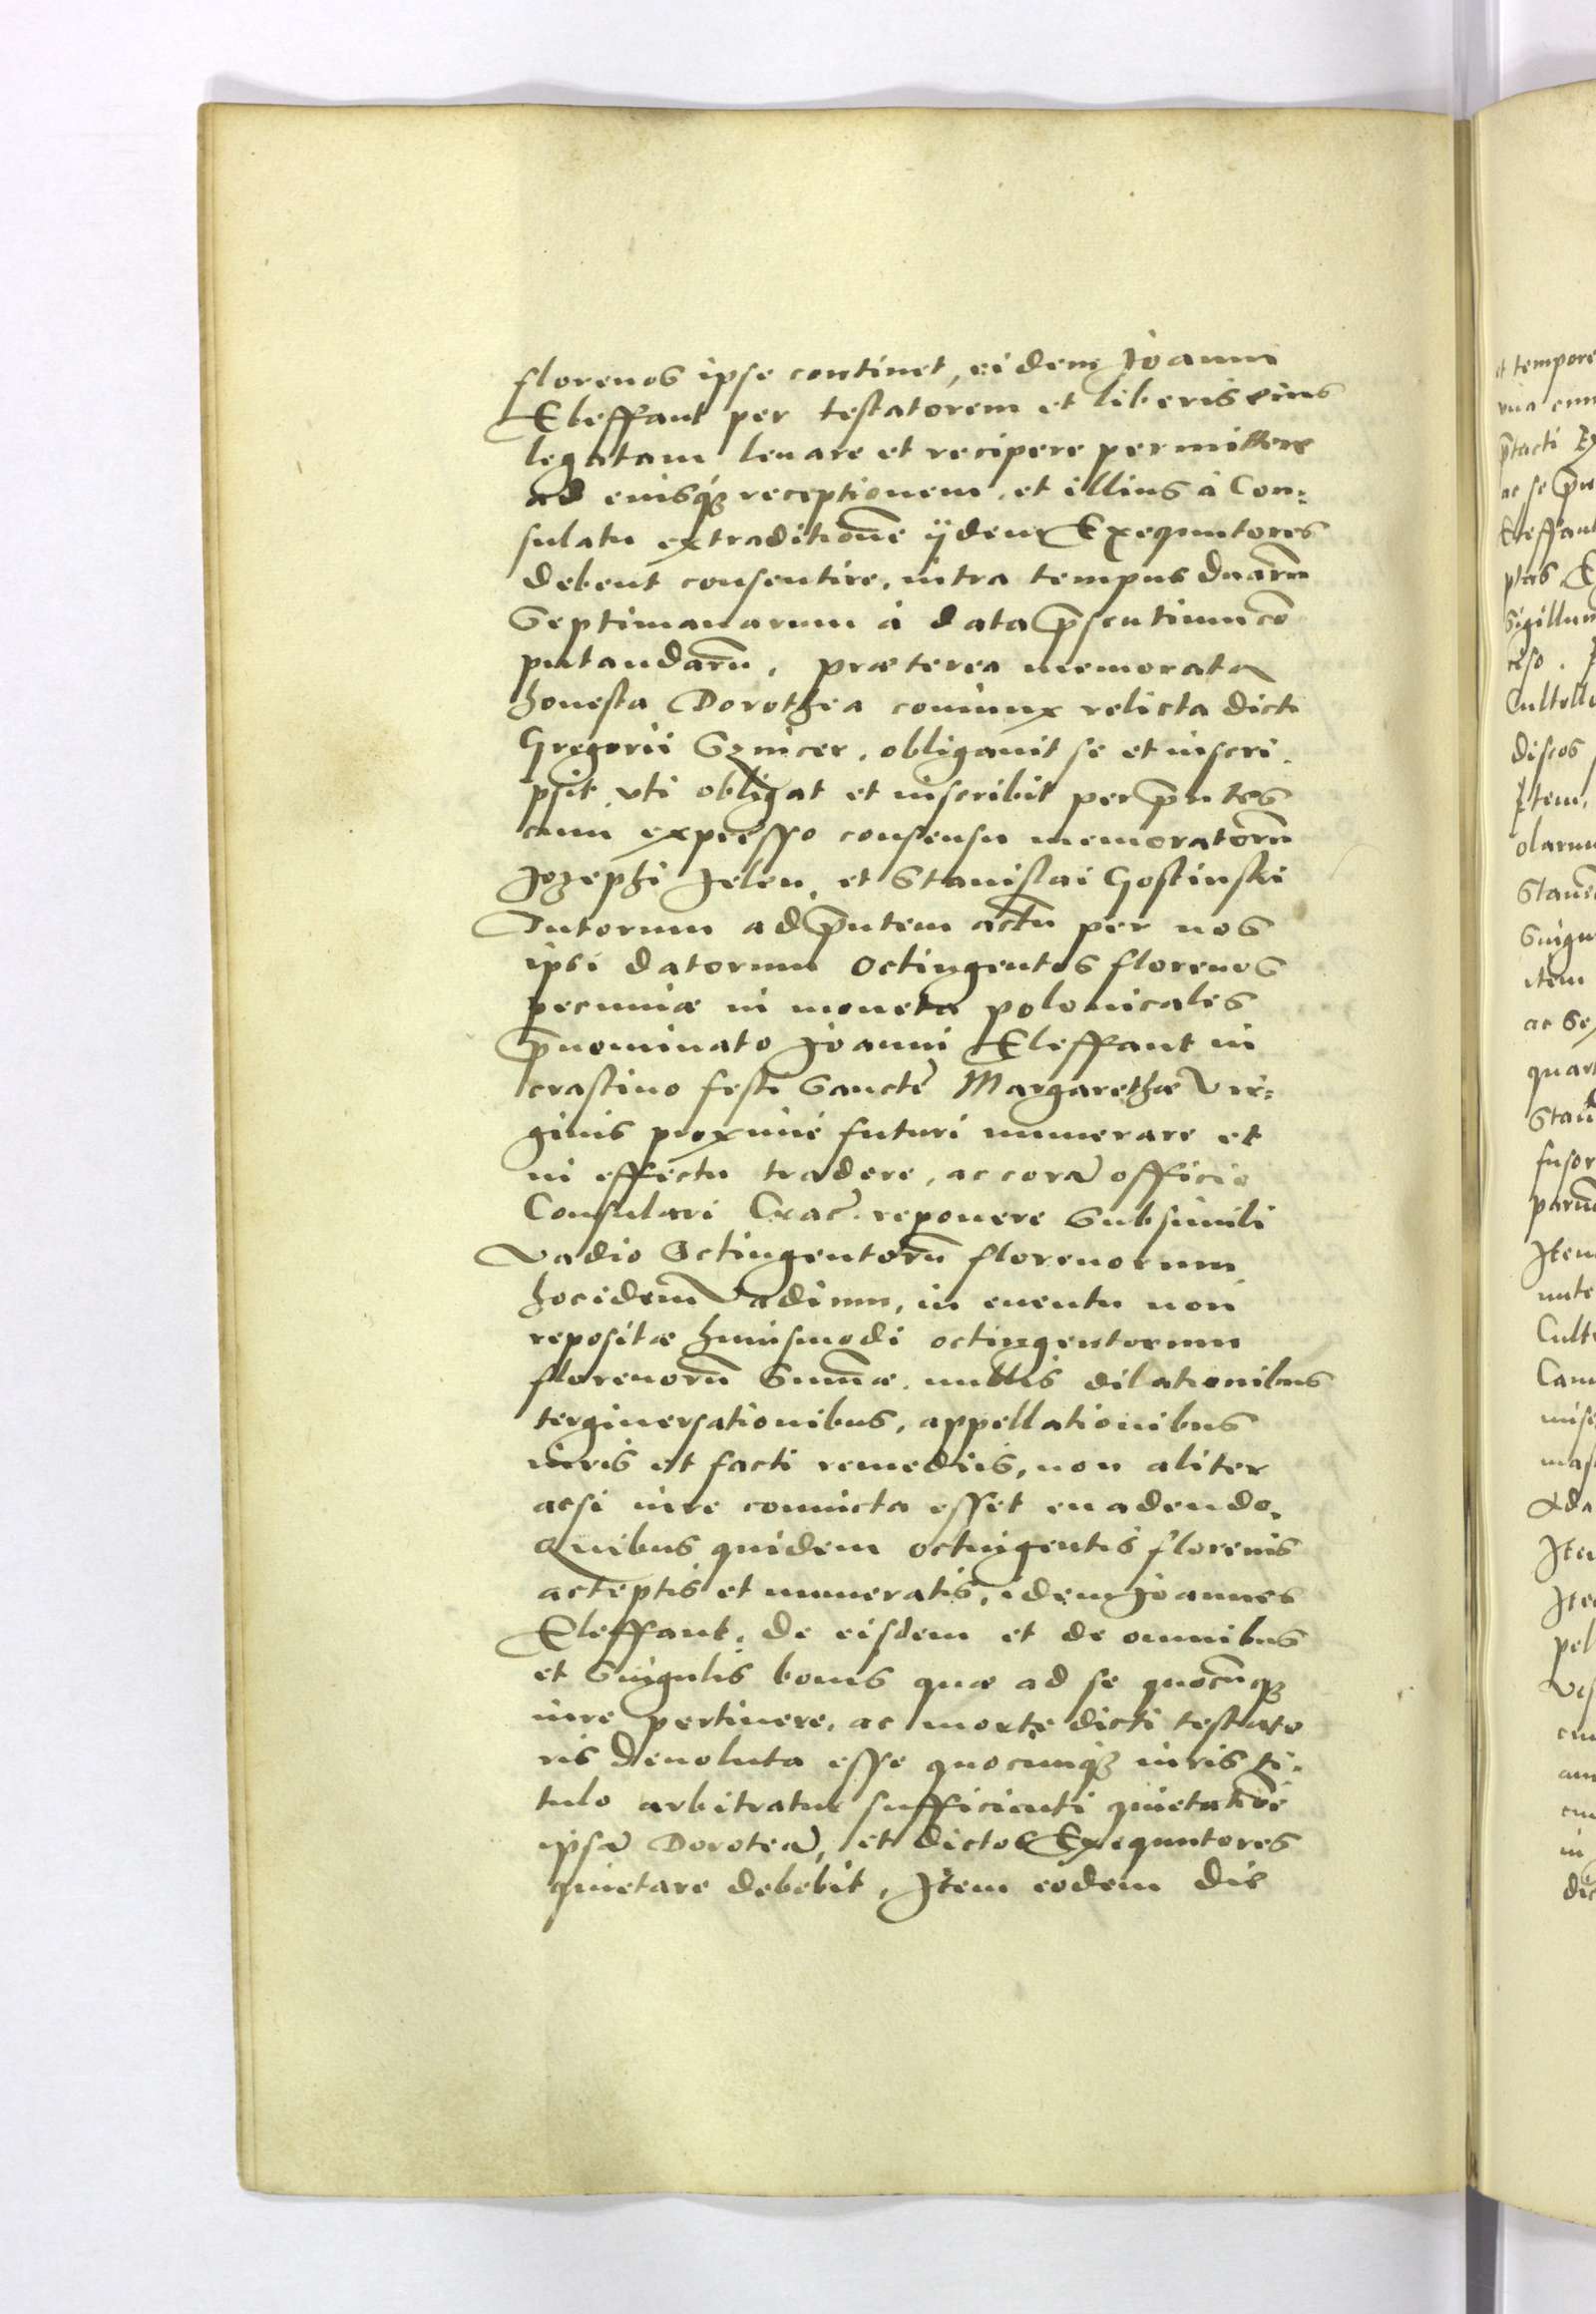 florenos ipse continet, eidem Joanni
Eleffant per testatorem et liberis eius
legatam leuare et recipere permittere
ad eiusq́ꝫ receptionem, et illius à Con:
sulatu extraditionē ijdem Exequutores
debent consentire, intra tempus duarū
Septimanarum à data p̄sentium cō
putandarū, præterea memorata
honesta Dorothea coniunx relicta dicti
Gregorii Sznicer, obligauit se et inscri
psit, vti obligat et inscribit per p̄ntes
cum expresso consensu memoratorū
Jozephi Jelen, et Stanislai Gostinski
Tutorum ad p̄ntem actū per nos
ipsi datorum octingentos florenos
pecuniæ in moneta polonicales
p̄nominato Joanni Eleffant in
crastino festi Sanctę Margarethæ Vir:
ginis proximè futuri numerare et
in effectu tradere, ac corā officio
Consulari Crac̄. reponere Sub simili
Vadio Octingentorū florenorum
hoc idem Vadium, in euentu non
repositæ huiusmodi octingentorum
florenorū Sum̄æ, nullis dilationibus
tergiuersationibus, appellationibus
iuris et facti remediis, non aliter
acsi iure conuicta esset euadendo.
Quibus quidem octingentis florenis
acceptis et numeratis, idem Joannes
Eleffant, de eisdem et de omnibus
et Singulis bonis quæ ad se quocūqꝫ
iure pertinere, ac morte dicti testato
ris deuoluta esse quocunqꝫ iuris ti:
tulo arbitratur sufficienti quietatiōe
ipsā Doroteā, et dictos Exequutores
quietare debebit, Item eodem die
et tempore
discos
Item,
item
Item